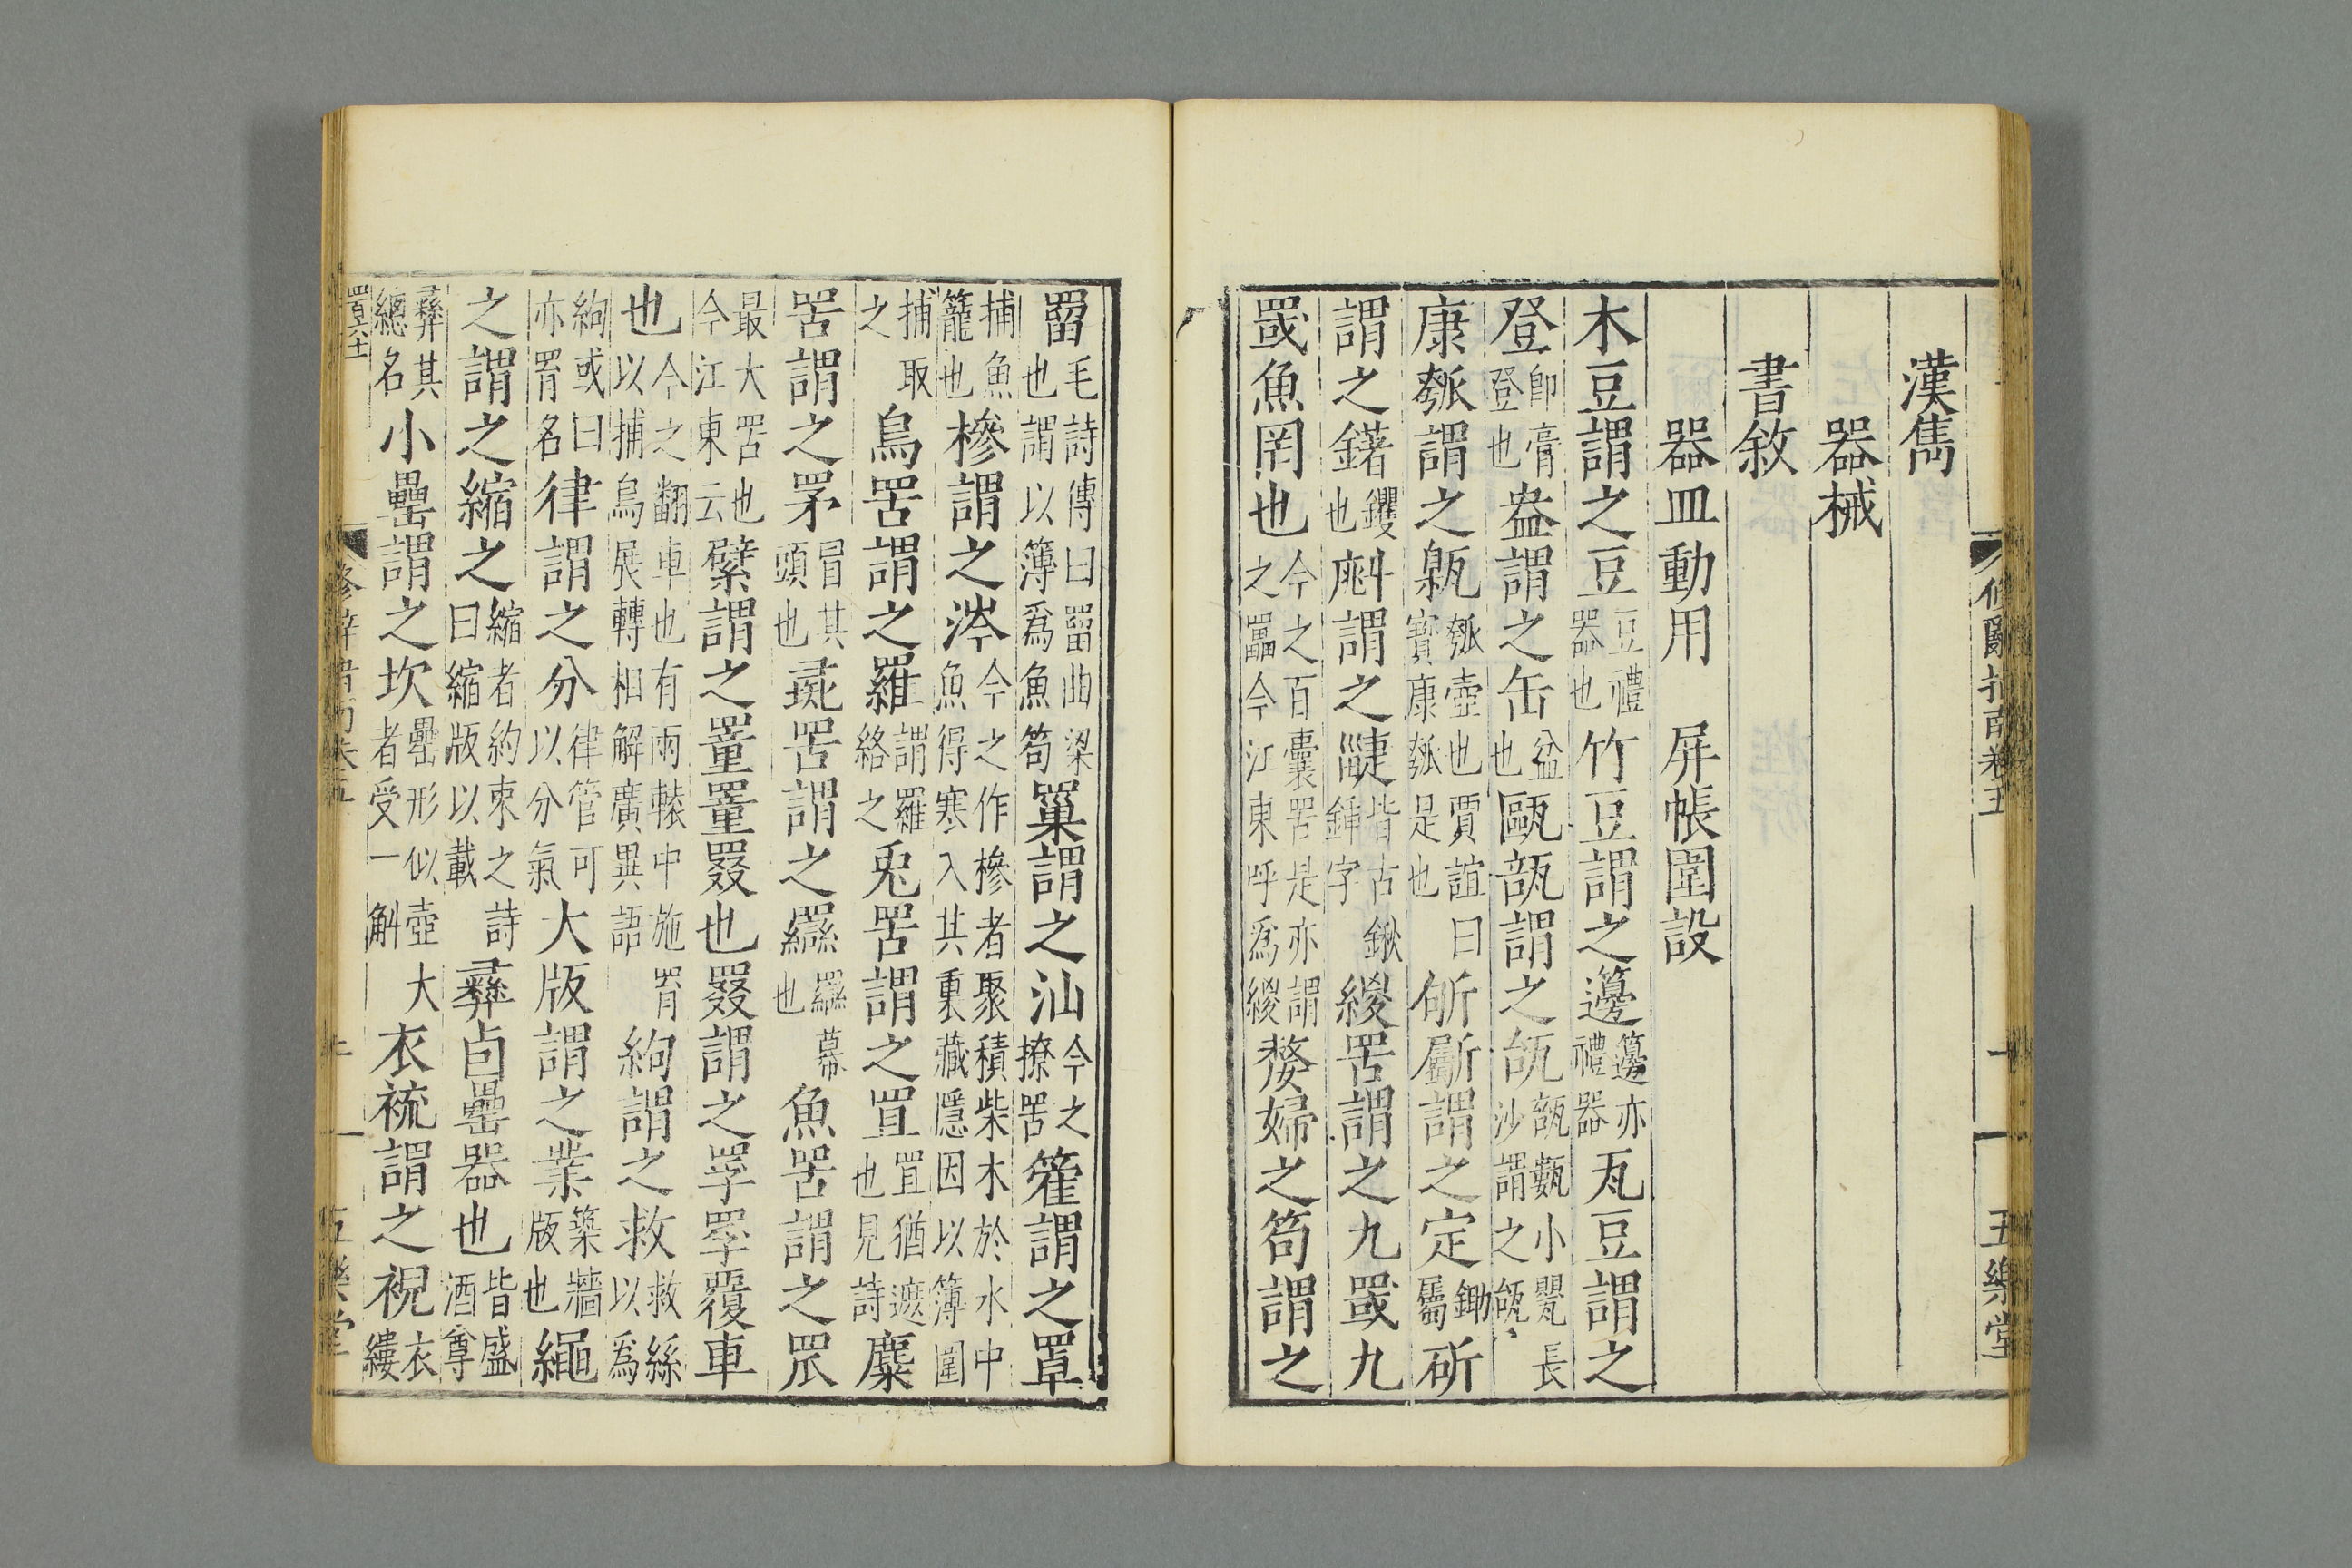 漢雋
器械
書敘
器皿動用 屏帳圍設
木豆謂之豆豆禮器也竹豆謂之籩籩亦禮器瓦豆謂之
登卽膏登也盎謂之缶盆也甌瓿謂之瓵瓿甊小甖長沙謂之瓵
康瓠謂之甈瓠壺也賈誼曰寶康瓠是也斪斸謂之定鋤屬斫
謂之鐯钁也㪺謂之疀皆古鍬鍤字緵罟謂之九罭九
罭魚罔也今之百囊罟是亦謂之䍡今江東呼爲緵嫠婦之笱謂之
罶毛詩傳曰罶曲梁也謂以簿爲魚笱罺謂之汕今之撩罟篧謂之罩
捕魚籠也槮謂之涔今之作槮者聚積柴木於水中魚得寒入其裏藏隱因以簿圍
捕取之鳥罟謂之羅謂羅絡之兎罟謂之罝罝猶遮也見詩麋
罟謂之罞冒其頭也彘罟謂之羉羉幕也魚罟謂之罛
最大罟也今江東云繴謂之罿罿罬也罬謂之罦罦覆車
也今之翻車也有兩轅中施罥以捕鳥展轉相解廣異語絇謂之救救絲以爲
絇或曰亦罥名律謂之分律管可以分氣大版謂之業築牆版也繩
之謂之縮之縮者約束之詩曰縮版以載彝卣罍器也皆盛酒尊
彝其總名小罍謂之坎罍形似壺大者受一斛衣裗謂之祝衣縷
修辭指南卷五
五樂堂
五樂堂